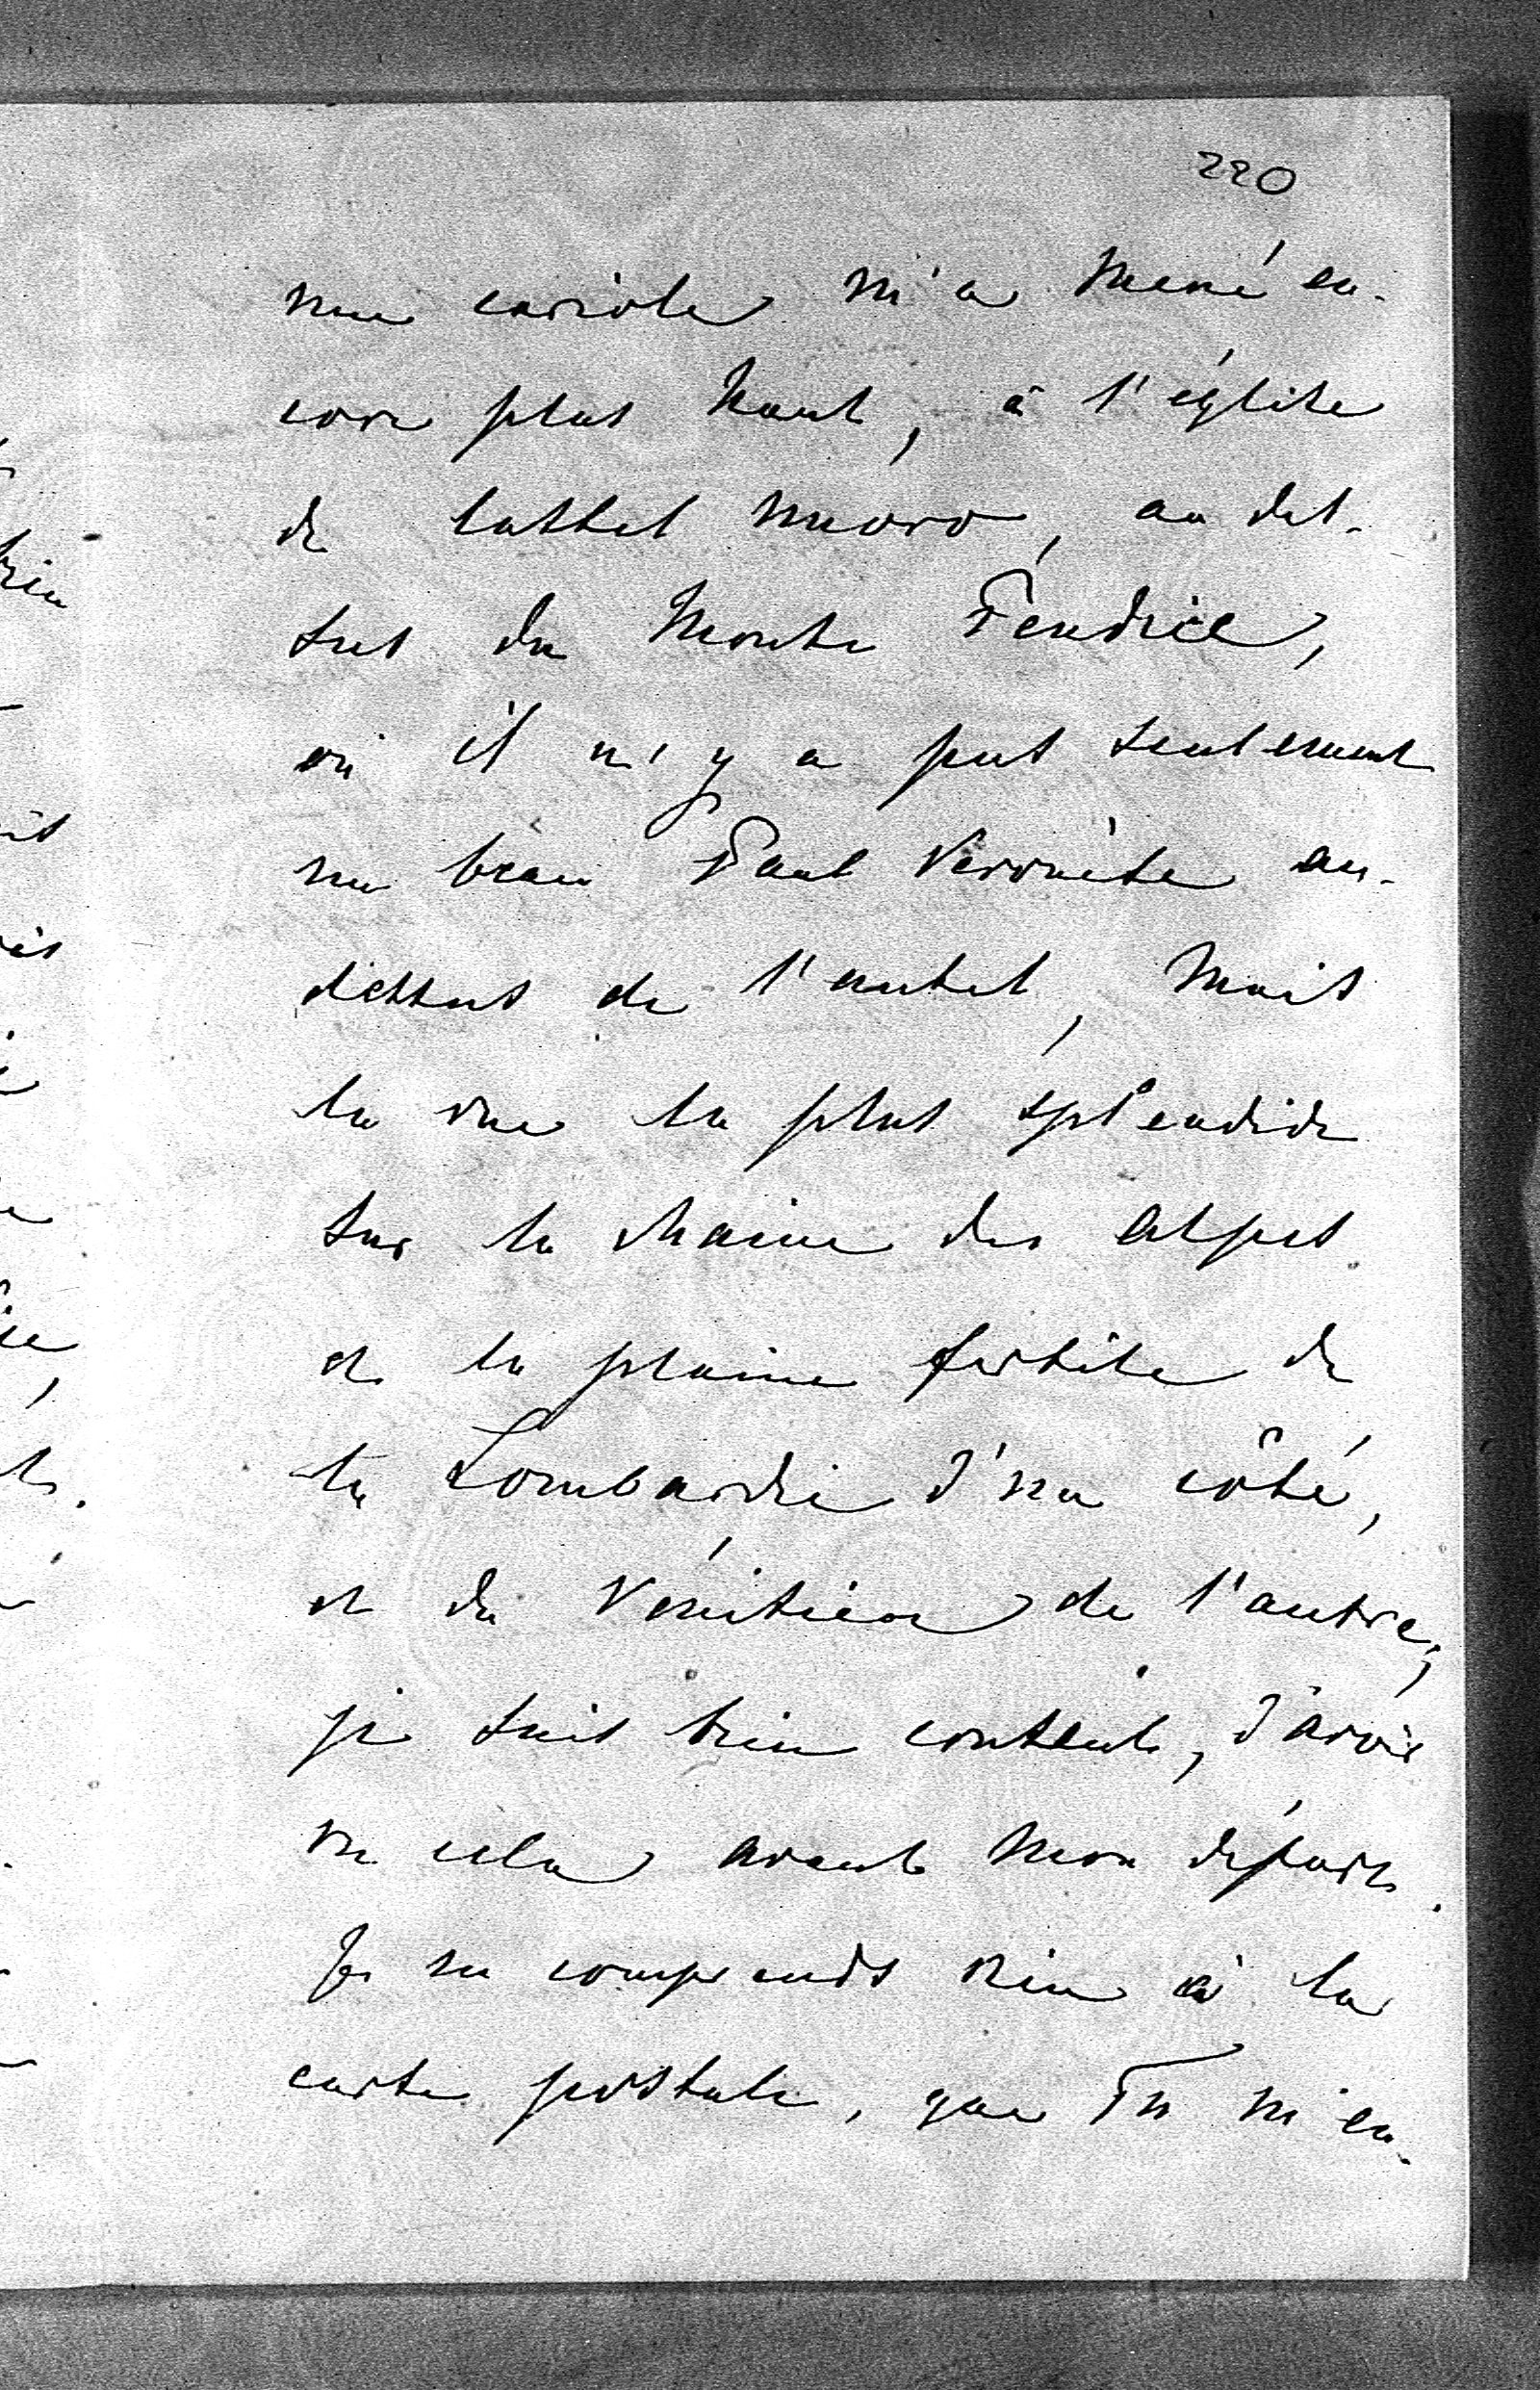 220
une cariole m'a mené en-
core plus haut, à l'église
de Castel nuovo, au des-
sus du Monte Pendice,
où il n'y a pas seulement
un beau Paul Veronèse au-
dessus de l'autel, mais
la vue la plus splendide
sur la chaine des Alpes
et la plaine fertile de
la Lombardie d'un côté,
et du Vénitien de l'autre;
je suis bien contente, d'avoir
vu cela avant mon départ.
Je ne comprends rien à la
carte postale, que Tu m'en-